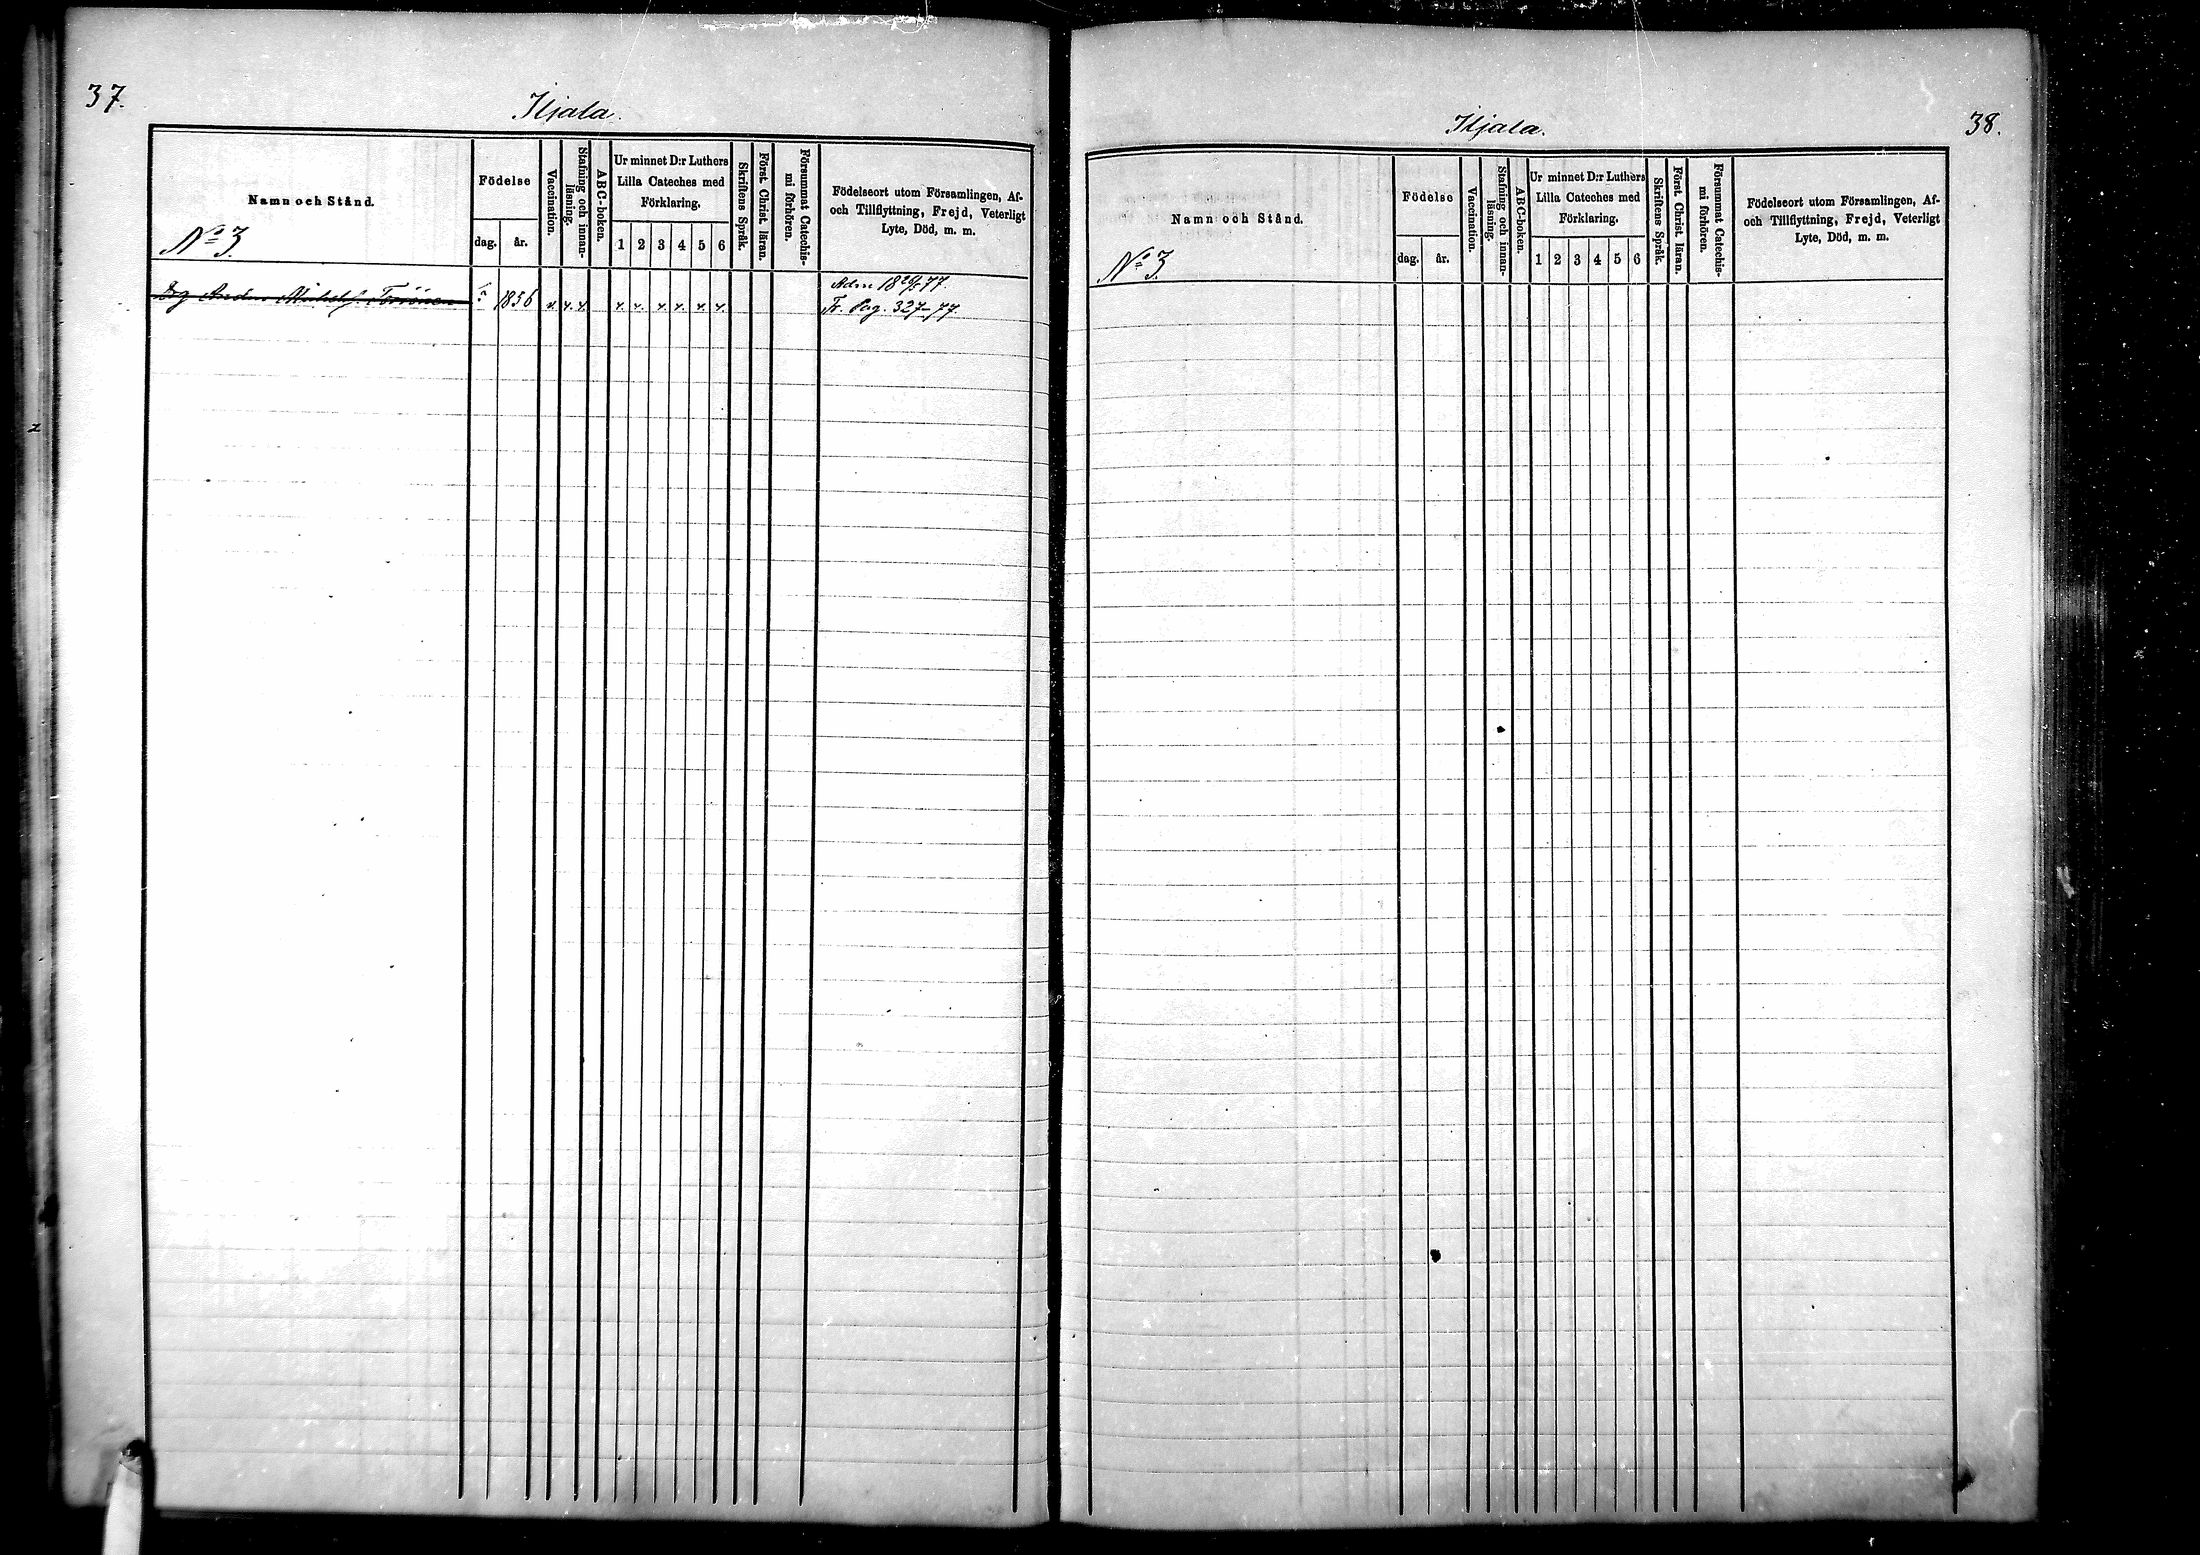 37.
Iljala.
Namn och Stånd.
No 3.
Födelse
dag. år.
Vaccination.
Stafning och innan-
läsning.
ABC-boken.
Ur minnet D:r Luthers
Lilla Cateches med
Förklaring.
1 2 3 4 5 6
Skriftens Språk.
Först. Christ. läran.
Försummat Catechis-
mi förhören.
Födelseort utom Församlingen, Af-
och Tillflyttning, Frejd, Veterligt
Lyte, Död, m. m.
Drg Anders Michels. 1856 v. v. v. v. v. v. v. v. v.
Adm 18 77.
Tr. Pag. 327-77.
Iljala.
38.
Namn och Stånd.
No 3.
Födelse
dag. år.
Vaccination.
Stafning och innan-
läsning.
ABC-boken.
Ur minnet D:r Luthers
Lilla Cateches med
Förklaring.
1 2 3 4 5 6
Skriftens Språk.
Först. Christ. läran.
Försummat Catechis-
mi förhören.
Födelseort utom Församlingen, Af-
och Tillflyttning, Frejd, Veterligt
Lyte, Död, m. m.